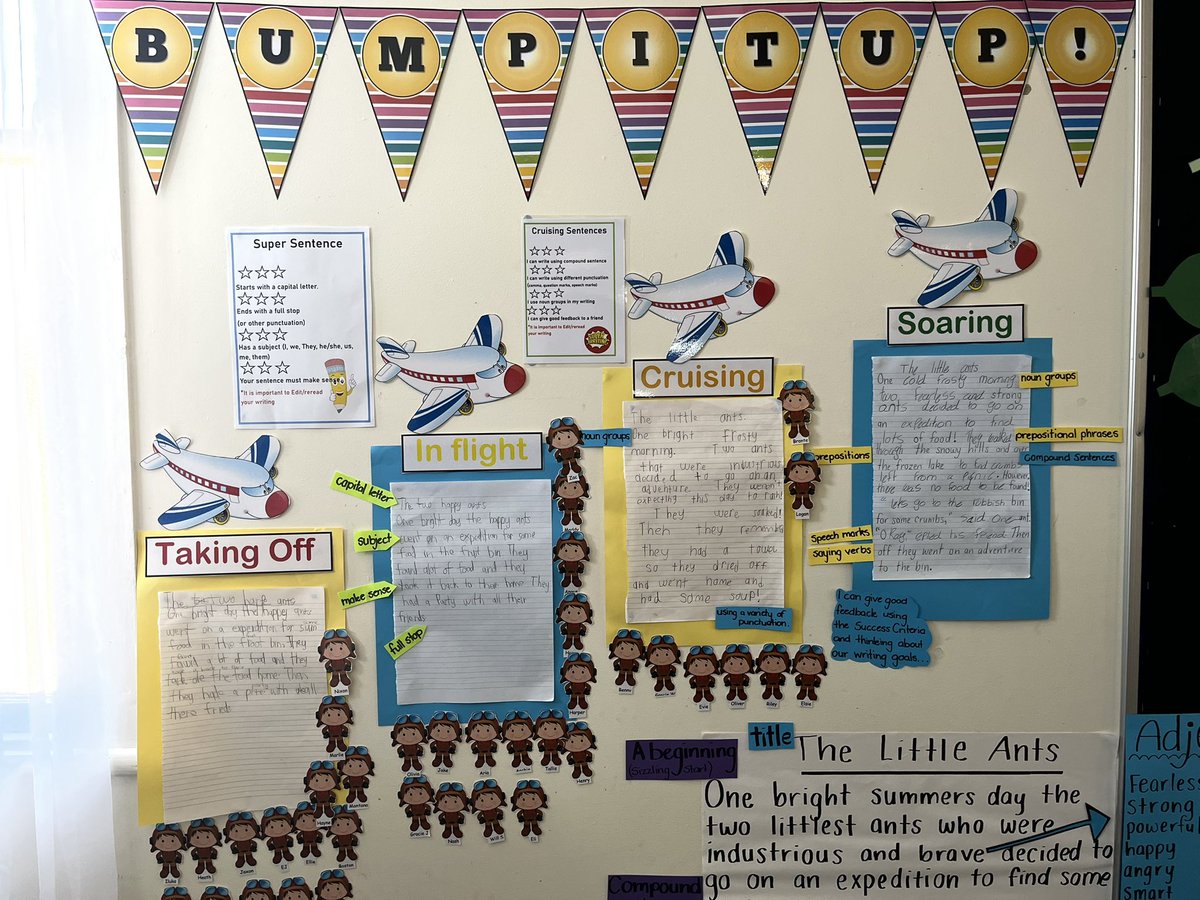 BUMP IT UP!
Super Sentence
Starts with a capital letter.
Ends with a full stop
(or other punctuation)
Has a subject (I, we, They, he/she, us,
me, them)
Your sentence must make sense
*It is important to Edit/reread
your writing
Cruising Sentences
I can write using compound sentence
I can write using different punctuation
(comma, question marks, speech marks)
I use noun groups in my writing
I can give good feedback to a friend
*It is important to Edit/reread
your writing
Taking Off
ants
bright day the happy
went on a expedition for
food in the
a lot of food and they
the food home Then
they
In flight
capital letter
subject
make sense
full stop
The two happy ants
One bright day the happy ants
went on an expedition for some
food in the fruit bin. They
found alot of food and they
took it back to their home They
had a Party with all their
friends
Cruising
noun groups
prepositions
using a variety of
punctuation.
The little ants.
One bright frosty
morning. Two ants
that were industrious
decided to go on an
adventure. They weren't
expecting this day to rain!
They were soaked!
Then they
they had a towel
so they dried off
and went home and
had some soup!
Soaring
noun groups
prepositional phrases
compound sentences
speech marks
saying verbs
The little ants
One cold frosty morning
two fearless and strong
ants decided to go on
an expedition to find
lots of food! They walked
through the snowy hills and over
the frozen lake to find crumbs
left from a Picnic. However
there was no food to be found!
"Lets go to the rubbish bin
for some crumbs," Said One ant.
his friend Then
off they went on an adventure
to the bin.
I can give good
feedback using
the Success Criteria
and thinking about
our writing goals...
Bronte
Logan
Zac
Harper
Henry
Nixon
Montana
Olivia
Jake
Aria
Tallia
Gracie J
Nash
Will S
Eli
Benny
Evie
Oliver
Riley
Elsie
Heath
Jaxon
EJ
Ellie
Boston
title
The Little Ants
A beginning
(Sizzling Start)
One bright summers day the
two littlest ants who were
industrious and brave decided to
go on an expedition to find some
Compound
Adje
Fearless
Strong
powerful
happy
angry
smart